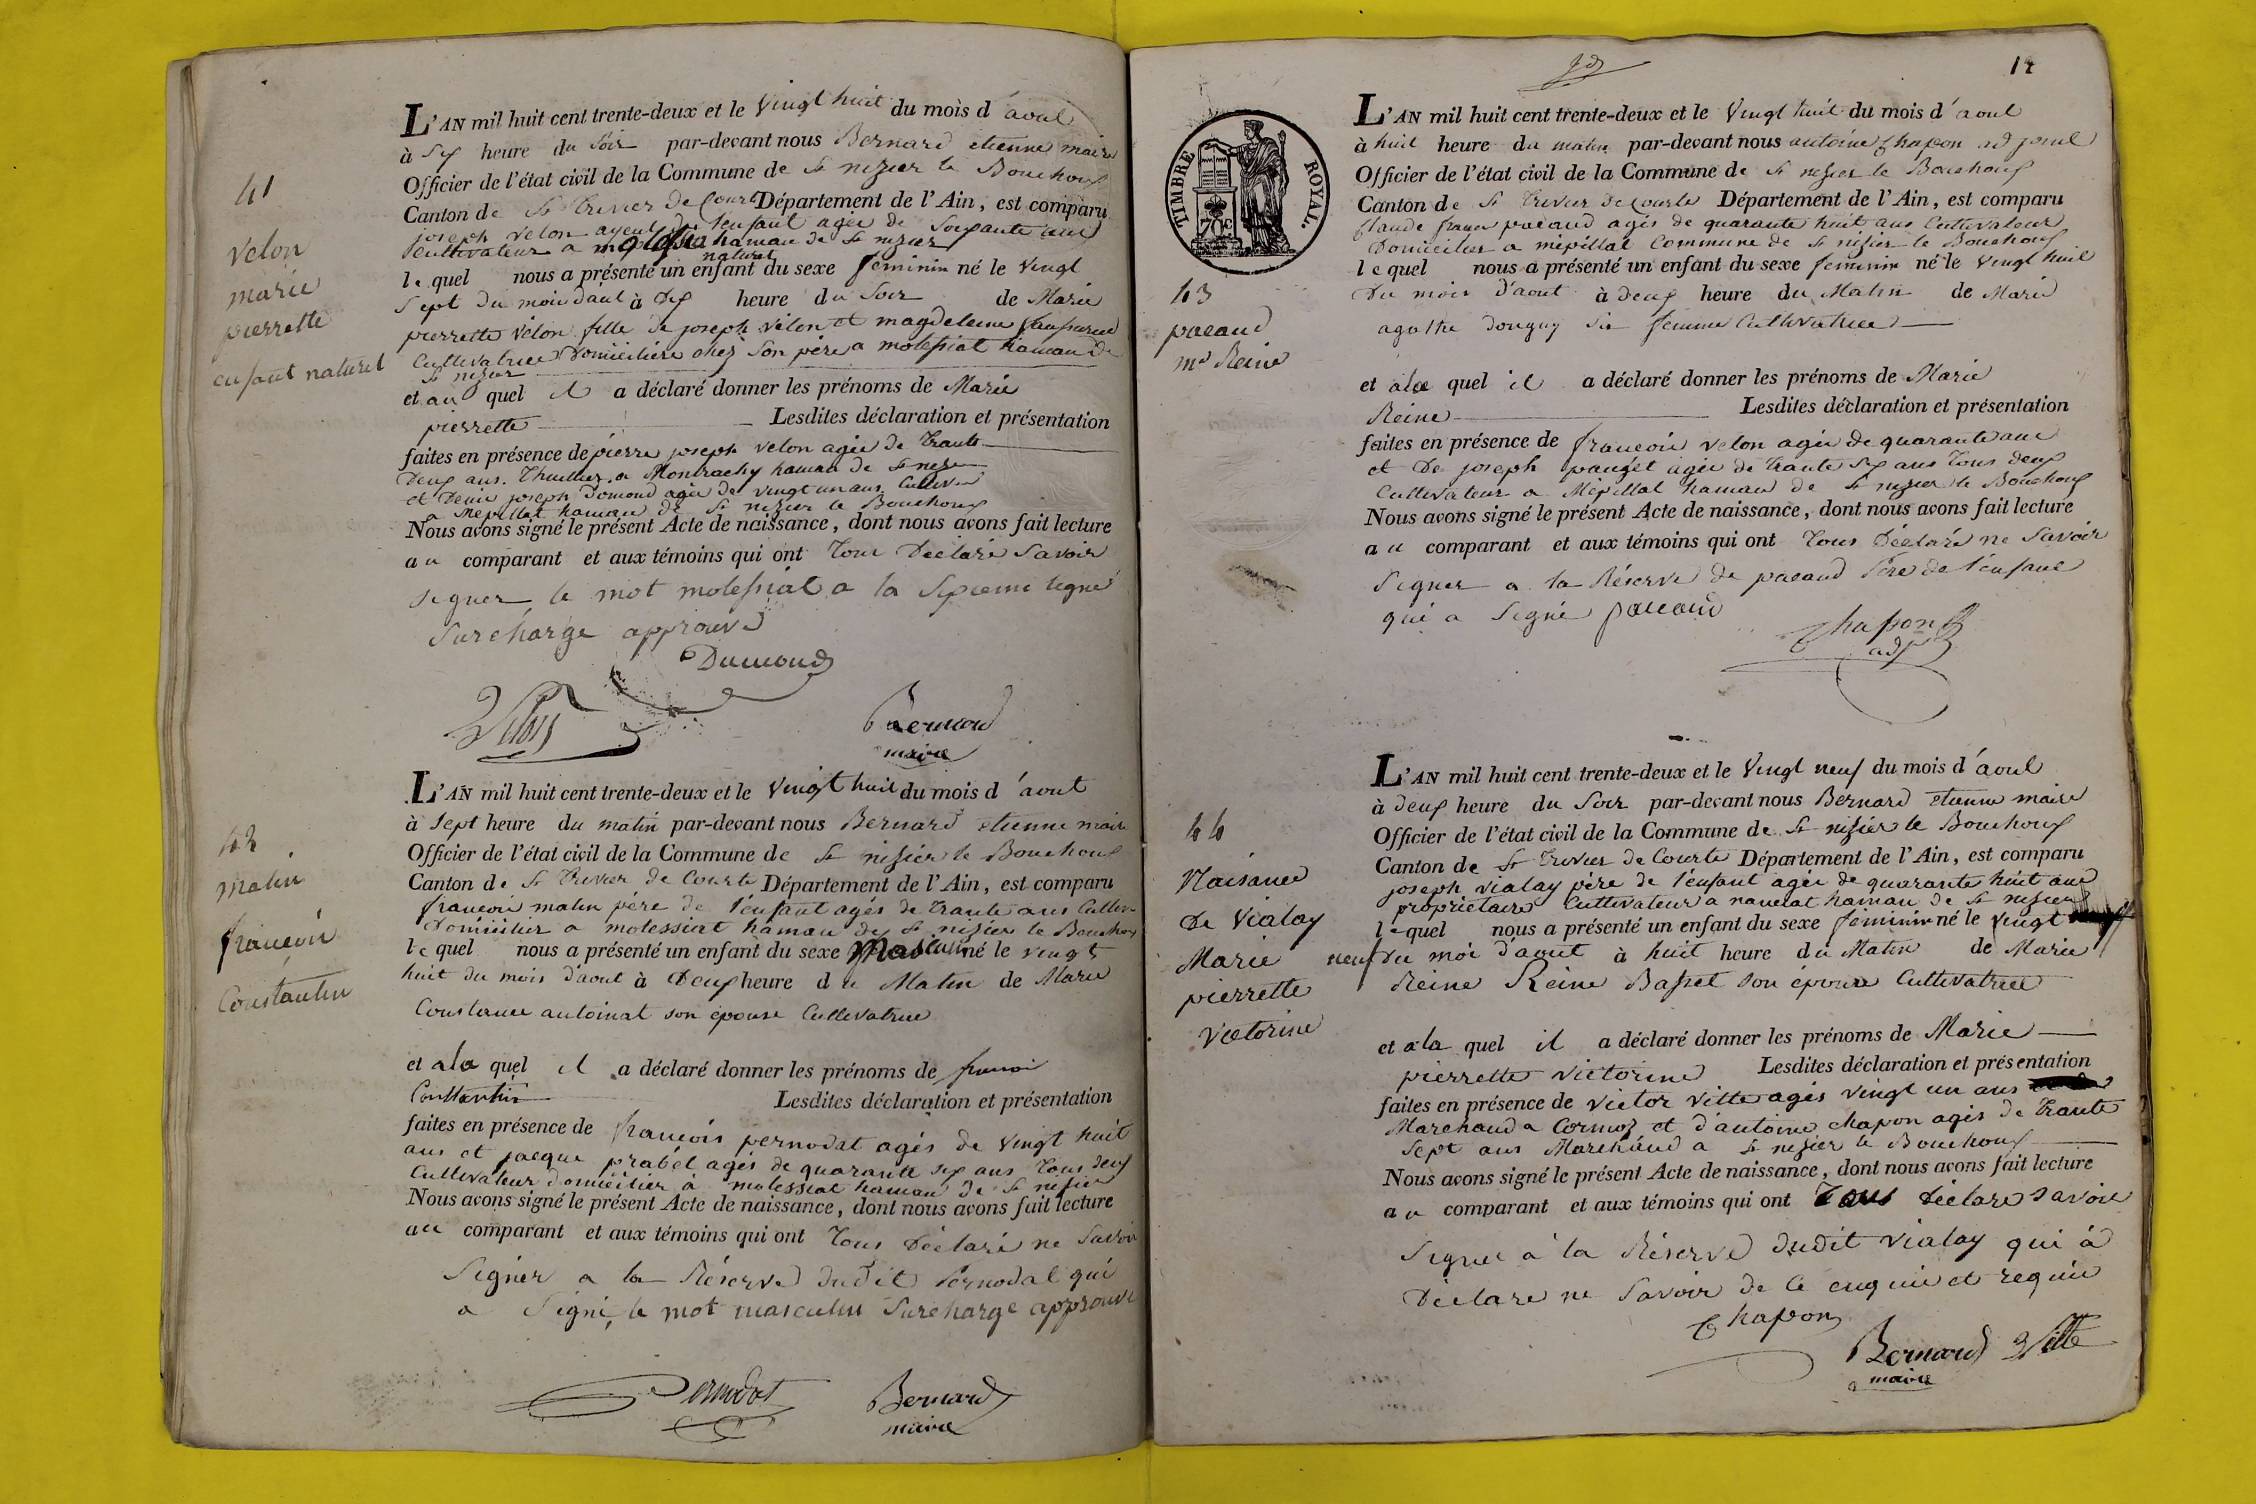 41
Velon
marie
pierrette
enfant naturel
L'AN mil huit cent trente-deux et le Vingt huit du mois d'aout
à Six heure du Soir par-devant nous Bernard etienne maire
Officier de l'état civil de la Commune de St nizier le Bouchoux
Canton de St trivier de Courte Département de l'Ain, est comparu
joseph velon ayeul de l'enfant agée de Soixante ans
Cultivateur a molessia hamau de St nizier
lequel nous a présenté un enfant naturel du sexe feminin né le Vingt
Sept du mois d'aout à Dix heure du Soir de Marie
pierrette Velon fille de joseph velon et magdeleine
Cultivatrice Domicilière chez Son père a molessiat hamau De
St nizier
et au quel il a déclaré donner les prénoms de Marie
pierrette Lesdites déclaration et présentation
faites en présence de pierre joseph velon agée de trante
Deux ans. Thuillier a Montrachy hamau de St nizier
et Denis joseph Domond agée de vingt un ans Cultiv
a Mepillat hamau de St nizier le Bouchoux
Nous avons signé le présent Acte de naissance, dont nous avons fait lecture
au comparant et aux témoins qui ont Tous Déclaré Savoir
signer le mot molessiat a la Sepieme ligne
Surcharge approuvé
Dumond
Velon
Bernard
maire
42
Matin
françois
Constantin
L'AN mil huit cent trente-deux et le Vingt huit du mois d'aout
à Sept heure du matin par-devant nous Bernard etienne maire
Officier de l'état civil de la Commune de St nizier le Bouchoux
Canton de St Trivier de Courte Département de l'Ain, est comparu
françois matin père de l'enfant agés de trante ans Cultiv
Domicilier a molessiat hamau de St nizier le Bouchoux
lequel nous a présenté un enfant du sexe Masculin né le vingt
huit du mois d'aout à Deux heure du Matin de Marie
Constance antoinat son epouse Cultivatrice
et ala quel il a déclaré donner les prénoms de francoi
Constantin Lesdites déclaration et présentation
faites en présence de françois pernodat agés de vingt huit
ans et jacque prabel agés de quarante six ans Tous deux
Cultivateur domicilier a molessiat hamau de St nizier
Nous avons signé le présent Acte de naissance, dont nous avons fait lecture
au comparant et aux témoins qui ont Tous Déclaré ne Savoir
Signer a la Réserve dudit Pernodat qui
a Signé, le mot masculin Surcharge approuvé
Pernodat
Bernard
maire
12
TIMBRE ROYAL.
43
pacaud
me Reine
L'AN mil huit cent trente-deux et le Vingt huit du mois d'aout
à huit heure du matin par-devant nous antoine Chapon adjoint
Officier de l'état civil de la Commune de St nizier le Bouchoux
Canton de St Trivier de Courte Département de l'Ain, est comparu
Claude françois pacaud agés de quarante huit ans Cultivateur
Domicilier a mépillat Commune de St nizier le Bouchoux
lequel nous a présenté un enfant du sexe feminin né le Vingt huit
Du mois d'aout à deux heure du Matin de Marie
agathe dougny Sa femme Cultivatrice
et ala quel il a déclaré donner les prénoms de Marie
Reine Lesdites déclaration et présentation
faites en présence de françois velon agée de quarante ans
et De joseph pauget agée de trante Six ans Tous deux
Cultivateur a Mépillat hamau de St nizier le Bouchoux
Nous avons signé le présent Acte de naissance, dont nous avons fait lecture
au comparant et aux témoins qui ont Tous Déclaré ne Savoir
Signer a la Réserve de pacaud Père de l'enfant
qui a Signé pacaud
Chapon
adj
44
Naisance
De Vialay
Marie
pierrette
Victorine
L'AN mil huit cent trente-deux et le Vingt neuf du mois d'aout
à deux heure du Soir par-devant nous Bernard etienne maire
Officier de l'état civil de la Commune de St nizier le Bouchoux
Canton de St Trivier de Courte Département de l'Ain, est comparu
joseph vialay père de l'enfant agée de quarante huit ans
propriétaire Cultivateur a navelat hamau de St nizier
lequel nous a présenté un enfant du sexe feminin né le vingt
neuf Du moi d'aout à huit heure du Matin de Marie
Reine Reine Basset son épouse Cultivatrice
et ala quel il a déclaré donner les prénoms de Marie
pierrette victorine Lesdites déclaration et présentation
faites en présence de victor vitte agés vingt un ans
Marchand a Cormoz et d'antoine chapon agés de trante
Sept ans Marchand a St nizier le Bouchoux
Nous avons signé le présent Acte de naissance, dont nous avons fait lecture
au comparant et aux témoins qui ont Tous Déclaré Savoir
Signer à la Réserve dudit vialay qui à
Déclare ne Savoir de ce enquie et requie
Chapon
Bernard
maire
Vitte